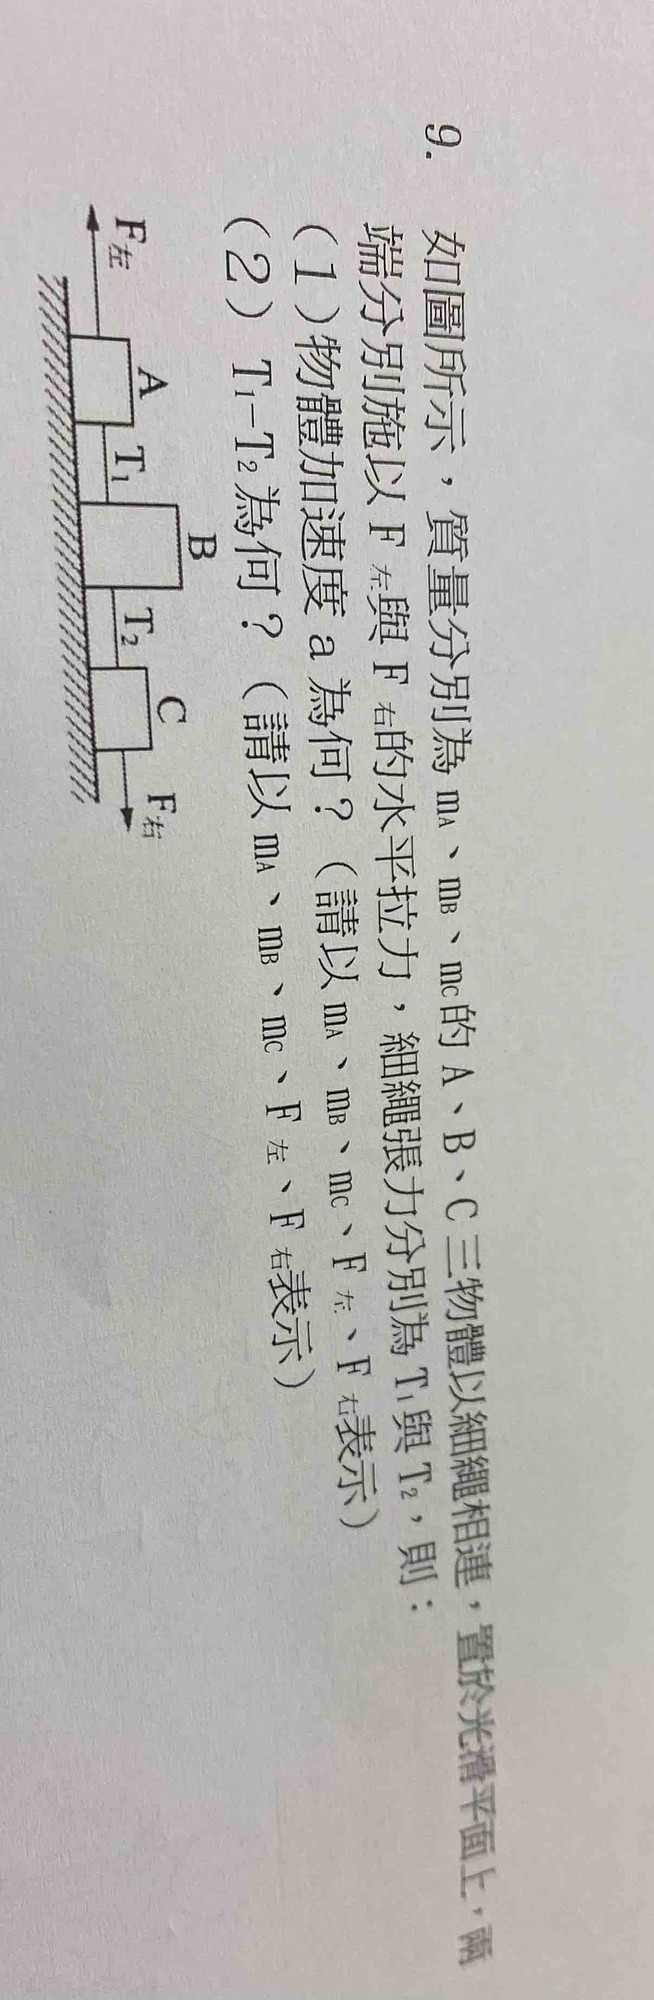 9. 如圖所示，質量分別為 mA、mB、mC的 A、B、C 三物體以細繩相連，置於光滑平面上，兩
端分別施以 F左與 F右的水平拉力，細繩張力分別為 T1與 T2，則：
(1)物體加速度 a 為何？（請以 mA、mB、mC、F左、F右表示）
(2) T1-T2為何？（請以 mA、mB、mC、F左、F右表示）
F左 A T1 B T2 C F右